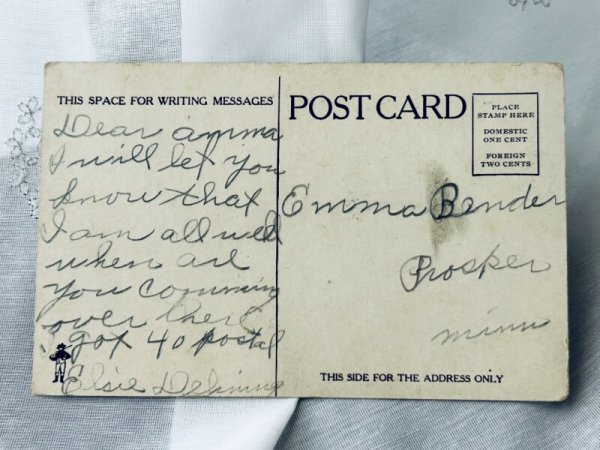 THIS SPACE FOR WRITING MESSAGES
Dear amma
I will let you
know that
I am all well
when are
you comming
over there
I got 40 postal
Elsie
POST CARD
PLACE
STAMP HERE
DOMESTIC
ONE CENT
FOREIGN
TWO CENTS
Emma Bender
Prosper
minn
THIS SIDE FOR THE ADDRESS ONLY